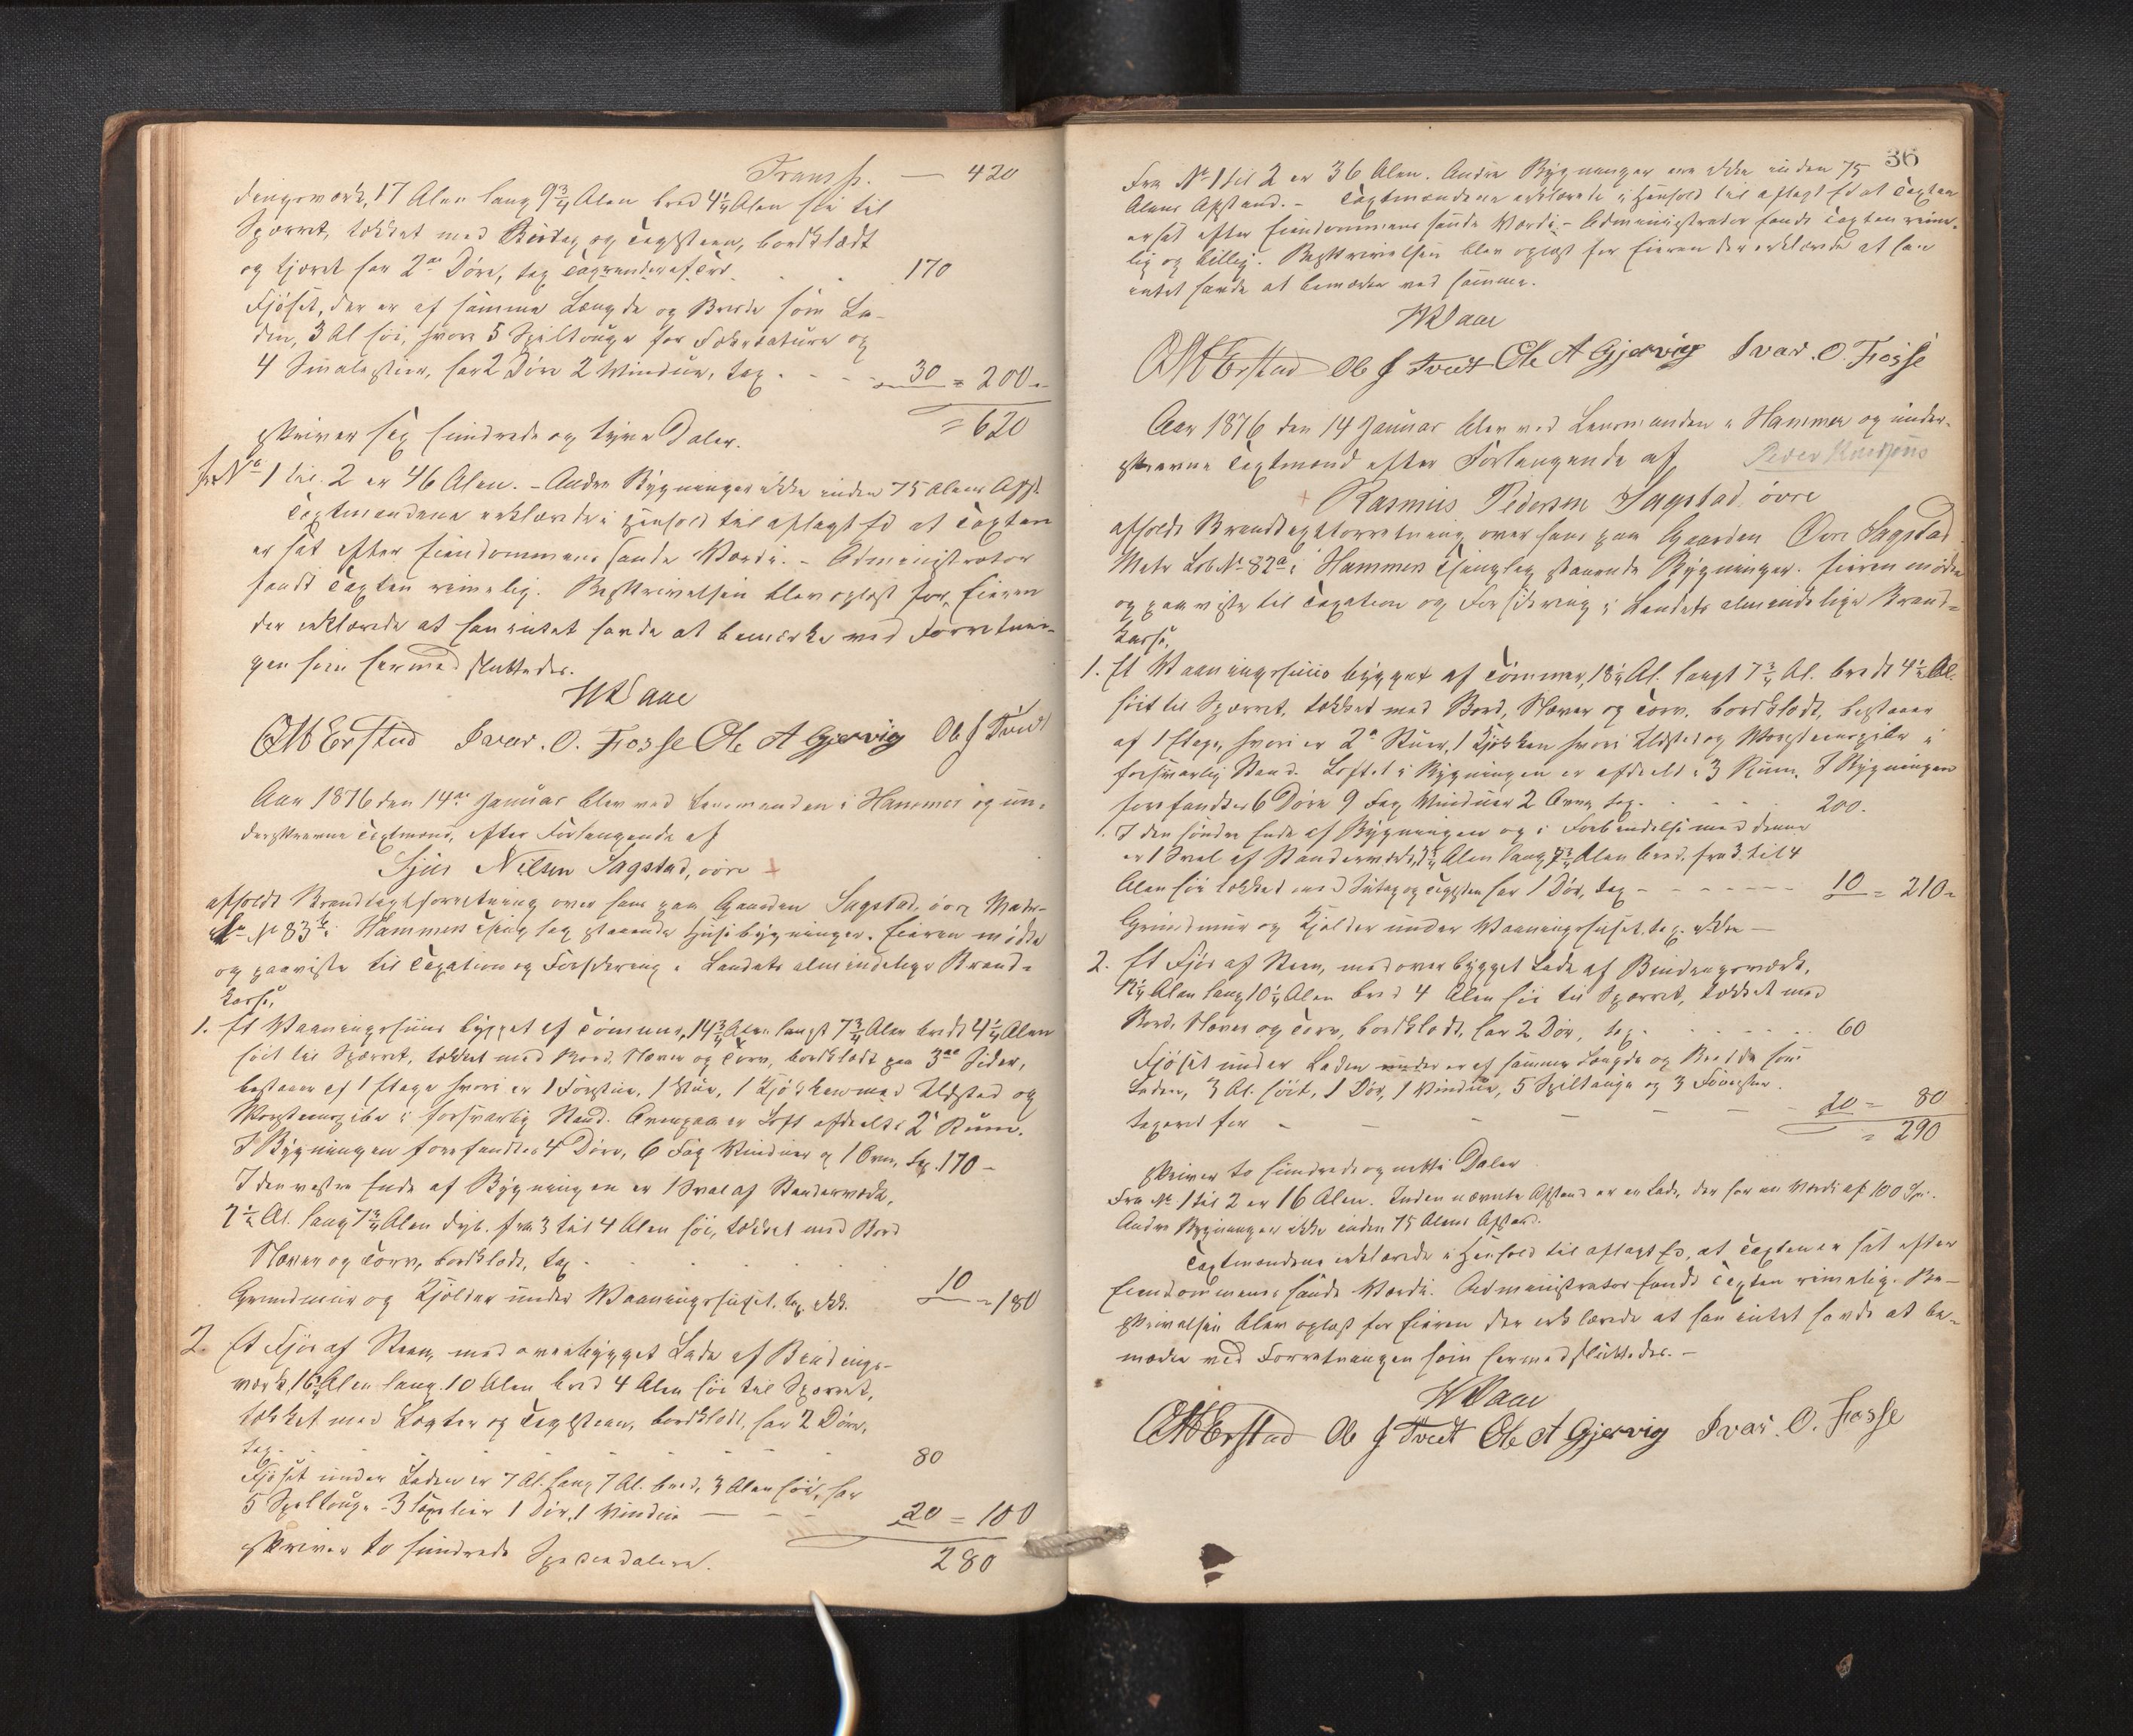 Transp. — 420
dingsværk, 17 Alen lang 9¾ Alen bred 4¼ Alen høi til
Sparret, tækket med Bord og Taglsteen, bordklædt
og tjæret har 2de Døre, tax. Tagrender af Træ . . 170
Fjøset, der er af samme Længde og Brede som La-
den, 3 Al høi, hvori 5 Spiltouge for Fækreature og
4 Smalestier, har 2 Døre 2 Vinduer, tax. - - - 30 = 200 -
= 620
skriver sex hundrede og tyve Daler.
fra No 1 til 2 er 46 Alen. - Andre Bygninger ikke inden 75 Alens Afst.
Taxtmændene erklærede i Henhold til aflagt Ed at Taxten
er sat efter Eiendommens sande Værdi. - Administrator
fandt Taxten rimelig. Beskrivelsen blev oplæst for Eieren
der erklærede at han intet havde at bemærke ved Forretnin-
gen som hermed sluttedes.
W Daae
O M Erstad Ivar. O. Fosse Ole A Gjervig Ole J Tveit
Aar 1876 den 14de Januar blev ved Lensmanden i Hammer og un-
derskrevne Taxtmænd, efter Forlangende af
Sjur Nilsen Sagstad, øvre +
afholdt Brandtaxtforretning over hans paa Gaarden Sagstad øvre Matr-
No 83b i Hammer Thinglag staaende Husebygninger. Eieren mødte
og paaviste til Taxation og Forsikring i Landets almindelige Brand-
kasse,
1. Et Vaaningshuus bygget af Tømmer, 14¾ Alen langt 7¾ Alen bredt 4¼ Alen
høit til Sparret, tækket med Bord, Næver og Torv, bordklædt paa 3de Sider,
bestaaer af 1 Etage hvori er 1 Forstue, 1 Stue, 1 Kjøkken med Ildsted og
Murstenspibe i forsvarlig Stand. Ovenpaa er Loft afdeelt i 2 Rum.
I Bygningen forefandtes 4 Døre, 6 Fag Vinduer og 1 Ovn, tax. 170 -
I den vestre Ende af Bygningen er 1 Sval af Standerværk,
2½ Al. lang 7¾ Alen dyb. fra 3 til 4 Alen høi, tækket med Bord
Næver og Torv, bordklædt, tax . . . . .
Grundmuur og Kjelder under Vaaningshuset, tax. ikke. 10 = 180
2. Et Fjøs af Steen, med overbygget Lade af Bindings-
værk, 16¼ Alen lang 10 Alen bred 4 Alen høi til Sparret,
tækket med Lægter og Taglsteen, bordklædt, har 2 Døre,
tax. - - - - - - 80
Fjøset under Laden er 7 Al. lang 7 Al. bred, 3 Alen høi, har
5 Spiltouge - 3 1 Dør, 1 Vindue — - - 20 = 100
skriver to hundrede Speciedalere. 280
36
Fra No 1 til 2 er 36 Alen. Andre Bygninger ere ikke inden 75
Alens Afstand. - Taxtmændene erklærede i Henhold til aflagt Ed at Taxten
er sat efter Eiendommens sande Værdi. - Administrator fandt Taxten rime-
lig og billig. Beskrivelsen blev oplæst for Eieren der erklærede at han
intet havde at bemærke ved samme.
W Daae
O M Erstad Ole J Tveit Ole A Gjervig Ivar. O. Fosse
Aar 1876 den 14 Januar blev ved Lensmanden i Hammer og under-
skrevne Taxtmænd efter Forlangende af Peder
+ Rasmus Pedersen Sagstad øvre
afholdt Brandtaxtforretning over hans paa Gaarden Øvre Sagstad
Matr Lob No 82a i Hammer Thinglag staaende Bygninger. Eieren mødte
og paaviste til Taxation og Forsikring i Landets almindelige Brand-
kasse,
1. Et Vaaningshuus bygget af Tømmer, 18¼ Al. langt 7¾ Al. bredt 4½ Al.
høit til Sparret, tækket med Bord, Næver og Torv, bordklædt, bestaaer
af 1 Etage, hvori er 2de Stuer, 1 Kjøkken hvori Ildsted og Murstenspibe i
forsvarlig Stand. Loftet i Bygningen er afdeelt i 3 Rum. I Bygningen
forefandtes 6 Døre 9 Fag Vinduer 2 Ovne tax. . . . . 200.
I den søndre Ende af Bygningen og i Forbindelse med denne
er 1 Sval af Standerværk, Alen lang 7¾ Alen bred, fra 3 til 4
Alen høi tækket med og Taglsten har 1 Dør, tax - - - - - 10 = 210 -
Grundmuur og Kjelder under Vaaningshuset, tax. ikke —
2. Et Fjøs af Steen, med overbygget Lade af Bindingsværk,
Alen lang 10¼ Alen bred 4 Alen høi til Sparret, tækket med
Bord, Næver og Torv, bordklædt, har 2 Dør, tax. . . . . 60
Fjøset under Laden er af samme Længde og Bredde som
Laden, 3 Al. høit, 1 Dør, 1 Vindue, 5 Spiltouge og 3
taxeret for - - - - - - 20 = 80
= 290
skriver to hundrede og nitti Daler
Fra No 1 til 2 er 16 Alen. Inden nævnte Afstand er en Lade, der har en Værdi af 100 Spd.
Andre Bygninger ikke inden 75 Alens Afstand.
Taxtmændene erklærede i Henhold til aflagt Ed, at Taxten er sat efter
Eiendommens sande Værdi. Administrator fandt Taxten rimelig. Be-
skrivelsen blev oplæst for Eieren der erklærede at han intet havde at be-
mærke ved Forretningen som hermed sluttedes. -
W Daae
O M Erstad Ole J Tveit Ole A Gjervig Ivar. O. Fosse